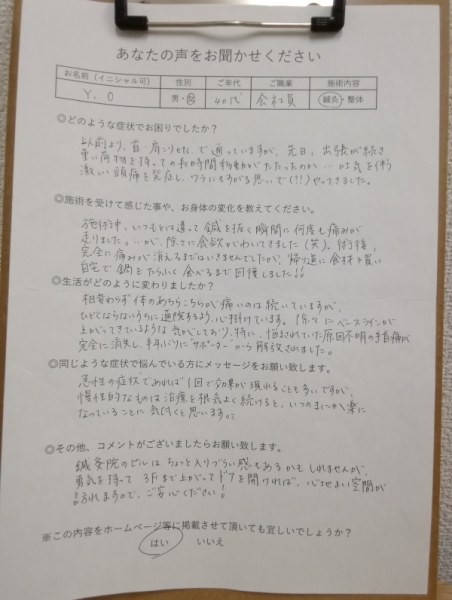 あなたの声をお聞かせください
お名前(イニシャル可) 性別 ご年代 ご職業 施術内容
Y.O 男・女 40代 会社員 鍼灸・整体
◎どのような症状でお困りでしたか?
以前より、首・肩こりかた、で通っていますが、先日、出張が続き
重い荷物を持っての長時間移動がたたったのか…吐気を伴う
激しい頭痛を発症し、ワラにもすがる思いで(!!)やってきました。
◎施術を受けて感じた事や、お身体の変化を教えてください。
施術中、いつもとは違って鍼を抜く瞬間に何度も痛みが
走りました。…が、徐々に食欲がわいてきました(笑)。術後、
完全に痛みが消えるまではいきませんでしたが、帰り道に食材を買い
自宅で鍋をたらふく食べるまで回復しました!!
◎生活がどのように変わりましたか?
相変わらず体のあちらこちらが痛いのは続いていますが、
ひどくならないうちに通院するよう、心掛けています。徐々にベースラインが
上がってきているような気がしており、特に、悩まされていた原因不明の手首痛が
完全に消失し、手首サポーターから解放されました。
◎同じような症状で悩んでいる方にメッセージをお願い致します。
急性の症状であれば1回で効果が現れることも多いですが、
慢性的なものは治療を根気よく続けると、いつのまにか楽に
なっていることに気付くと思います。
◎その他、コメントがございましたらお願い致します。
鍼灸院のビルはちょっと入りづらい感もあるかもしれませんが、
勇気を持って3Fまで上がってドアを開ければ、心地よい空間が
訪れますので、ご安心ください!
※この内容をホームページ等に掲載させて頂いても宜しいでしょうか?
はい いいえ